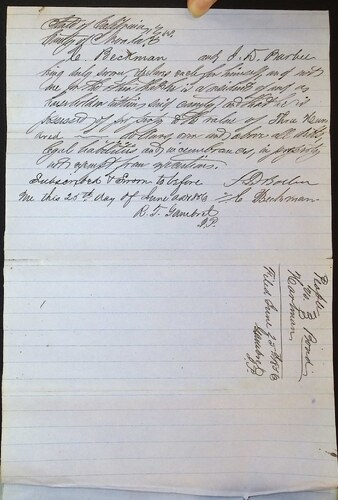 State of California
County of Shasta } ss.
C. Beckman and J. D. Barber
being duly sworn, declares each for himself and not
one for the other that he is a resident of and
householder within said county and that he is
possessed of property to the value of Three Hun
dred dollars over and above all debts,
legal liabilities and incumbrances, in property
not exempt from execution.
Subscribed & Sworn to before J. D. Barber
me this 25th day of June C. Beckman
R. T. Gambrel
J.P.
People
vs } Bond
Hartman
Filed June
Gambrel
J.P.